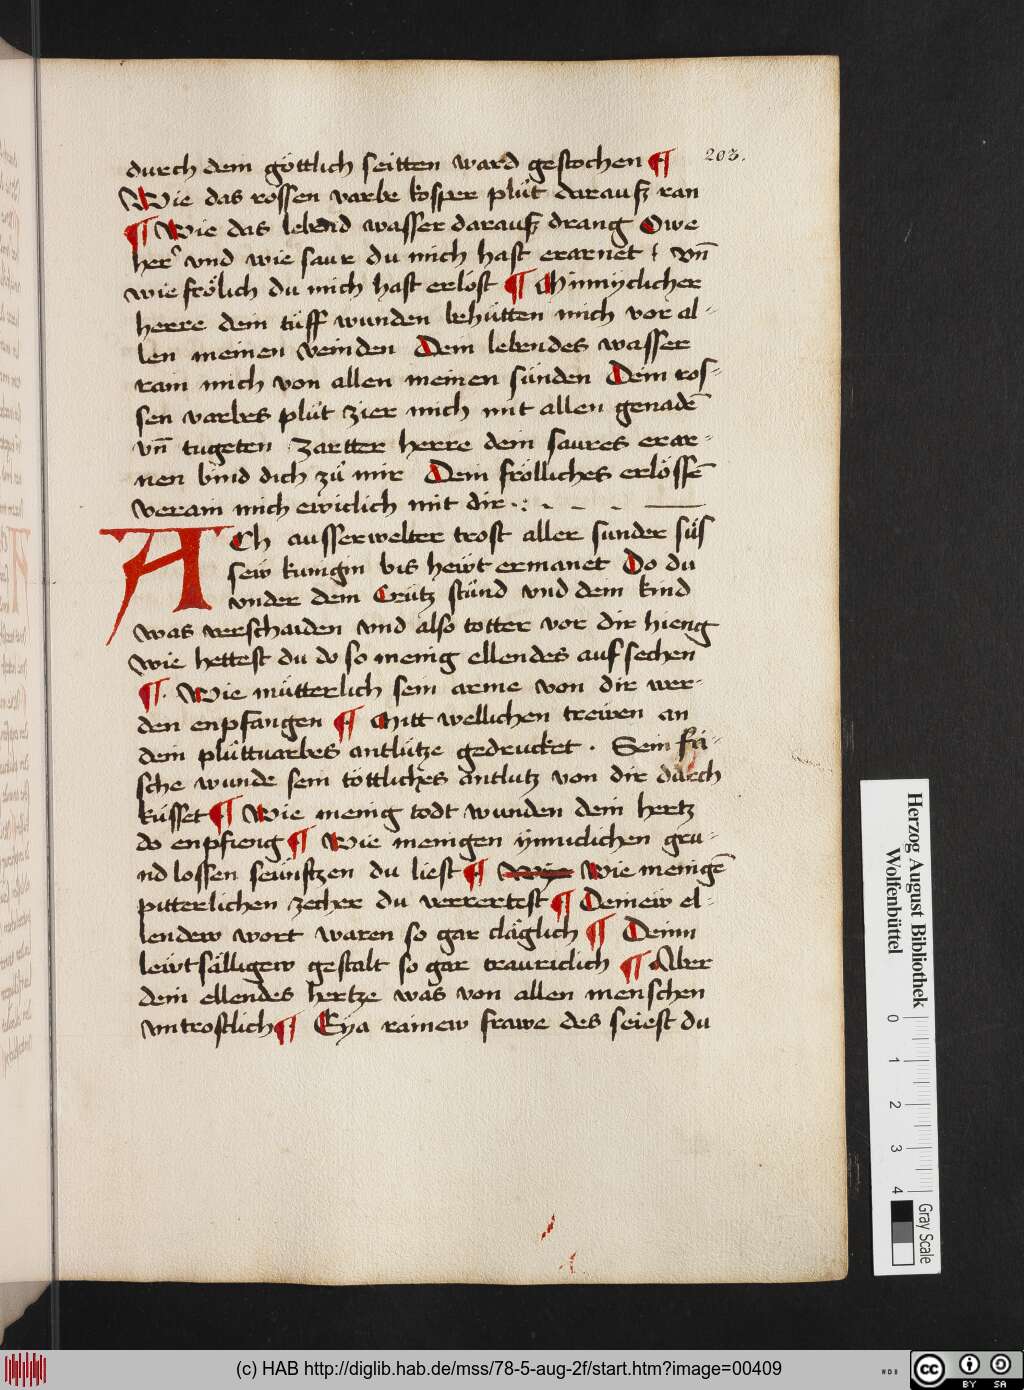 203.
durch dem göttlich seitten ward gestochen ¶
Wie das rossen varbe kosper plůt darauß ran
¶ Wie das lebend wasser darauß drang Owe
her vnd wie saur du mich hast erarnet / vn̄
wie frölich du mich hast erlöst ¶ Minnyclicher
herre dein tüff wunden behütten mich vor al-
len meinen veinden Dein lebendes wasser
rain mich von allen meinen sünden Dein ros-
sen varbes plůt zier mich mit allen genadē
vn̄ tugeten zartter herre dein saures erar-
nen bind dich zů mir Dein frölliches erlössē
verain mich ewiclich mit dir
ACh ausserwelter trost aller sunder süs
sew kunigin bis hewt ermanet Do du
vnder dem Crütz stůnd vnd dein kind
was verschaiden vnd also totter vor dir hieng
wie hettest du do so menig ellendes auf sechen
¶ Wie mütterlich sein arme von dir wer-
den enpfangen ¶ Mitt wellichen trewen an
dein plůttuarbes antlütze gedrucket . Sein fri-
sche wunde sein töttliches antlutz von dir durch
küsset ¶ Wie menig todt wunden dein hertz
do enpfieng ¶ Wie menigen ynniclichen gru-
nd lossen seünftzen du liest ¶ Wie Wie menigē
pitterlichen zecher du verrertest ¶ Deinew el-
lendew wort waren so gar cläglich ¶ Deinn
lewtsälligew gestalt so gar trauriclich ¶ Aber
dein ellendes hertze was von allen menschen
vntrostlich ¶ Eya rainew frawe des seiest du
Herzog August Bibliothek
Wolfenbüttel
0 1 2 3 4
Gray Scale
(c) HAB http://diglib.hab.de/mss/78-5-aug-2f/start.htm?image=00409
cc BY SA